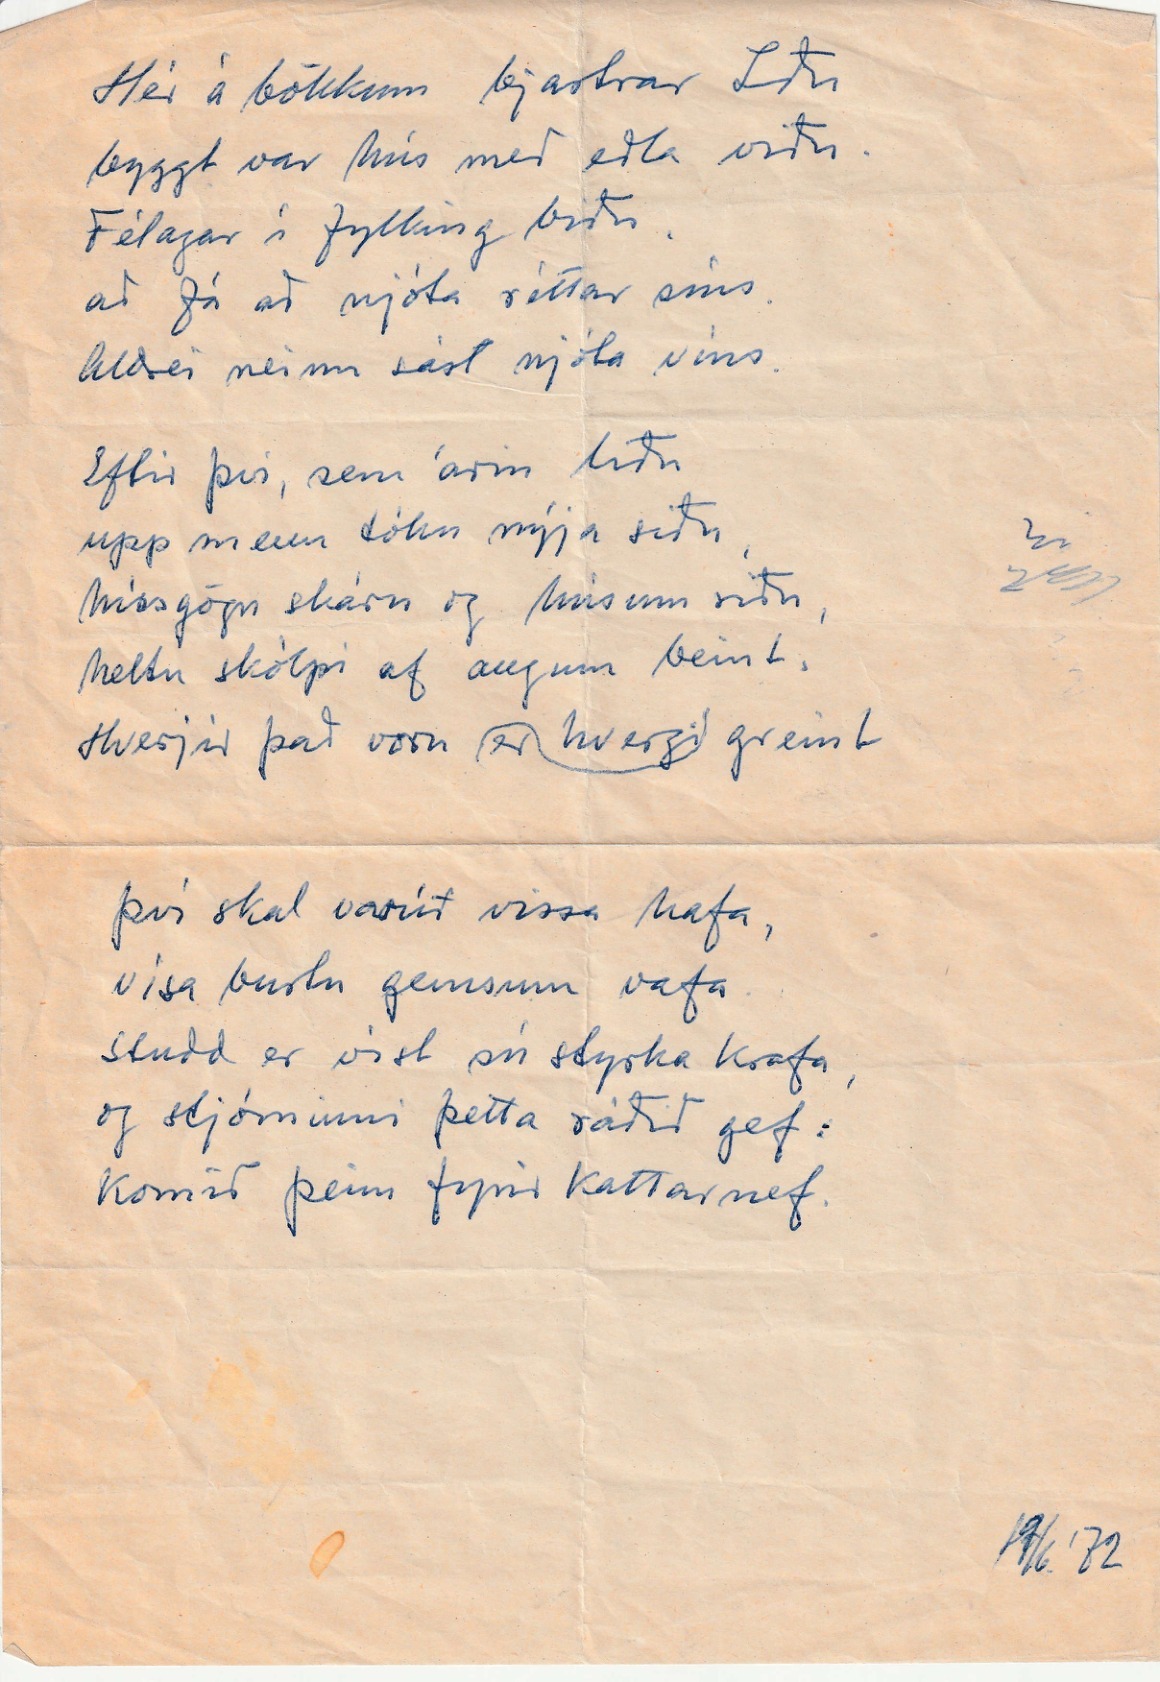 Hér á bökkum bjartrar Iðu
byggt var hús með eðla viðu.
Félagar í fylking biðu,
að fá að njóta réttar síns.
Aldrei neinn sást njóta víns.
Eftir því, sem árin liðu
upp menn tóku nýja siðu,
húsgögn skáru og húsum riðu,
heltu skólpi af augum beint.
Hverjir það voru er hvergi greint
Því skal varúð vissa hafa,
vísa burtu gemsum vafa
Studd er víst sú styrka krafa,
og stjórninni þetta ráðið gef:
Komið þeim fyrir kattarnef.
19/6 '72